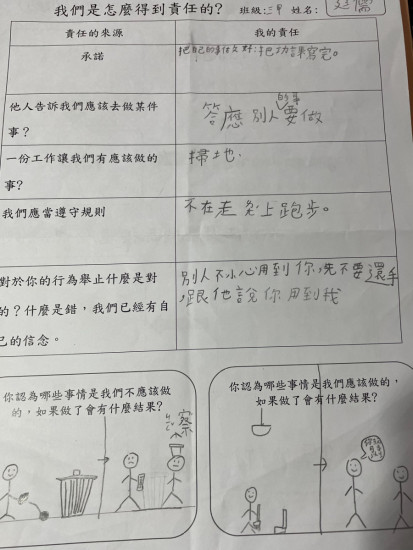 我們是怎麼得到責任的? 班級:三甲 姓名:
責任的來源 我的責任
承諾 把自己的事做好:把功課寫完。
他人告訴我們應該去做某件
事? 答應別人的事要做
一份工作讓我們有應該做的 掃地.
事?
我們應當遵守規則 不在走廊上跑步。
對於你的行為舉止什麼是對 別人不小心用到你,先不要還手
的?什麼是錯,我們已經有自 ,跟他說你用到我
己的信念。
你認為哪些事情是我們不應該做
的,如果做了會有什麼結果?
警察
你認為哪些事情是我們應該做的,
如果做了會有什麼結果?